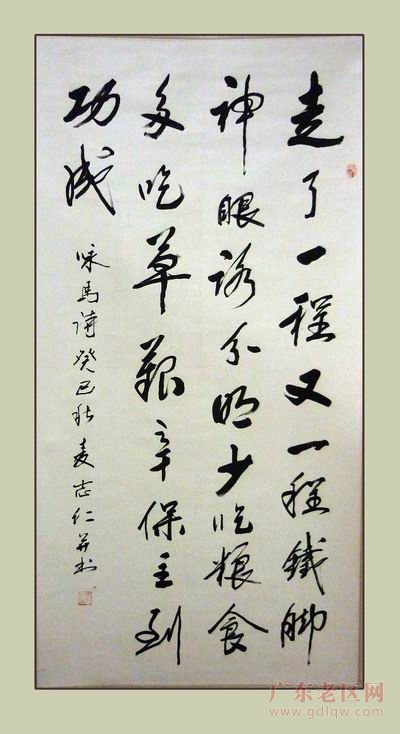 走了一程又一程鐵脚
神眼路分明少吃粮食
多吃草艰辛保主到
功成
咏馬詩癸巳秋麦志仁并书
广东老区网
www.gdlqw.com